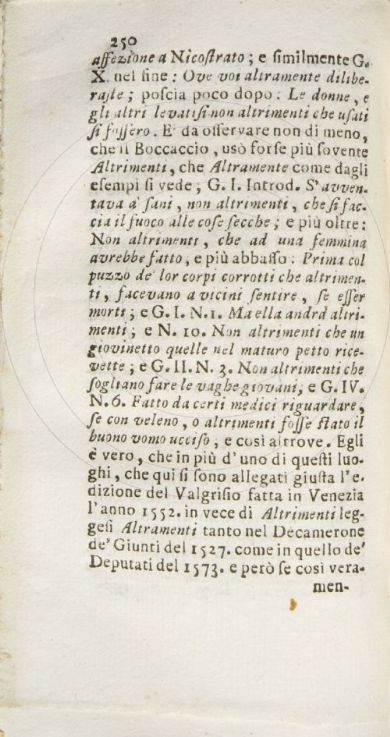 250
affezione a Nicostrato; e similmente G.
X. nel fine: Ove voi altramente dilibe-
raste; poscia poco dopo: Le donne, e
gli altri levatisi non altrimenti che usati
si fossero. E' da osservare non di meno,
che il Boccaccio, usò forse più sovente
Altrimenti, che Altramente come dagli
esempi si vede; G. I. Introd. S'avven-
tava a' sani, non altrimenti, che si fac-
cia il fuoco alle cose secche; e più oltre:
Non altrimenti, che ad una femmina
avrebbe fatto, e più abbasso: Prima col
puzzo de' lor corpi corrotti che altrimen-
ti, facevano a vicini sentire, se esser
morti; e G. I. N. 1. Ma ella andrà altri-
menti; e N. 10. Non altrimenti che un
giovinetto quelle nel maturo petto rice-
vette; e G. II. N. 3. Non altrimenti che
sogliano fare le vaghe giovani, e G. IV.
N. 6. Fatto da certi medici riguardare,
se con veleno, o altrimenti fosse stato il
buono uomo ucciso, e così altrove. Egli
è vero, che in più d'uno di questi luo-
ghi, che qui si sono allegati giusta l'e-
dizione del Valgrisio fatta in Venezia
l'anno 1552. in vece di Altrimenti leg-
gesi Altramenti tanto nel Decamerone
de' Giunti del 1527. come in quello de'
Deputati del 1573. e però se così vera-
men-